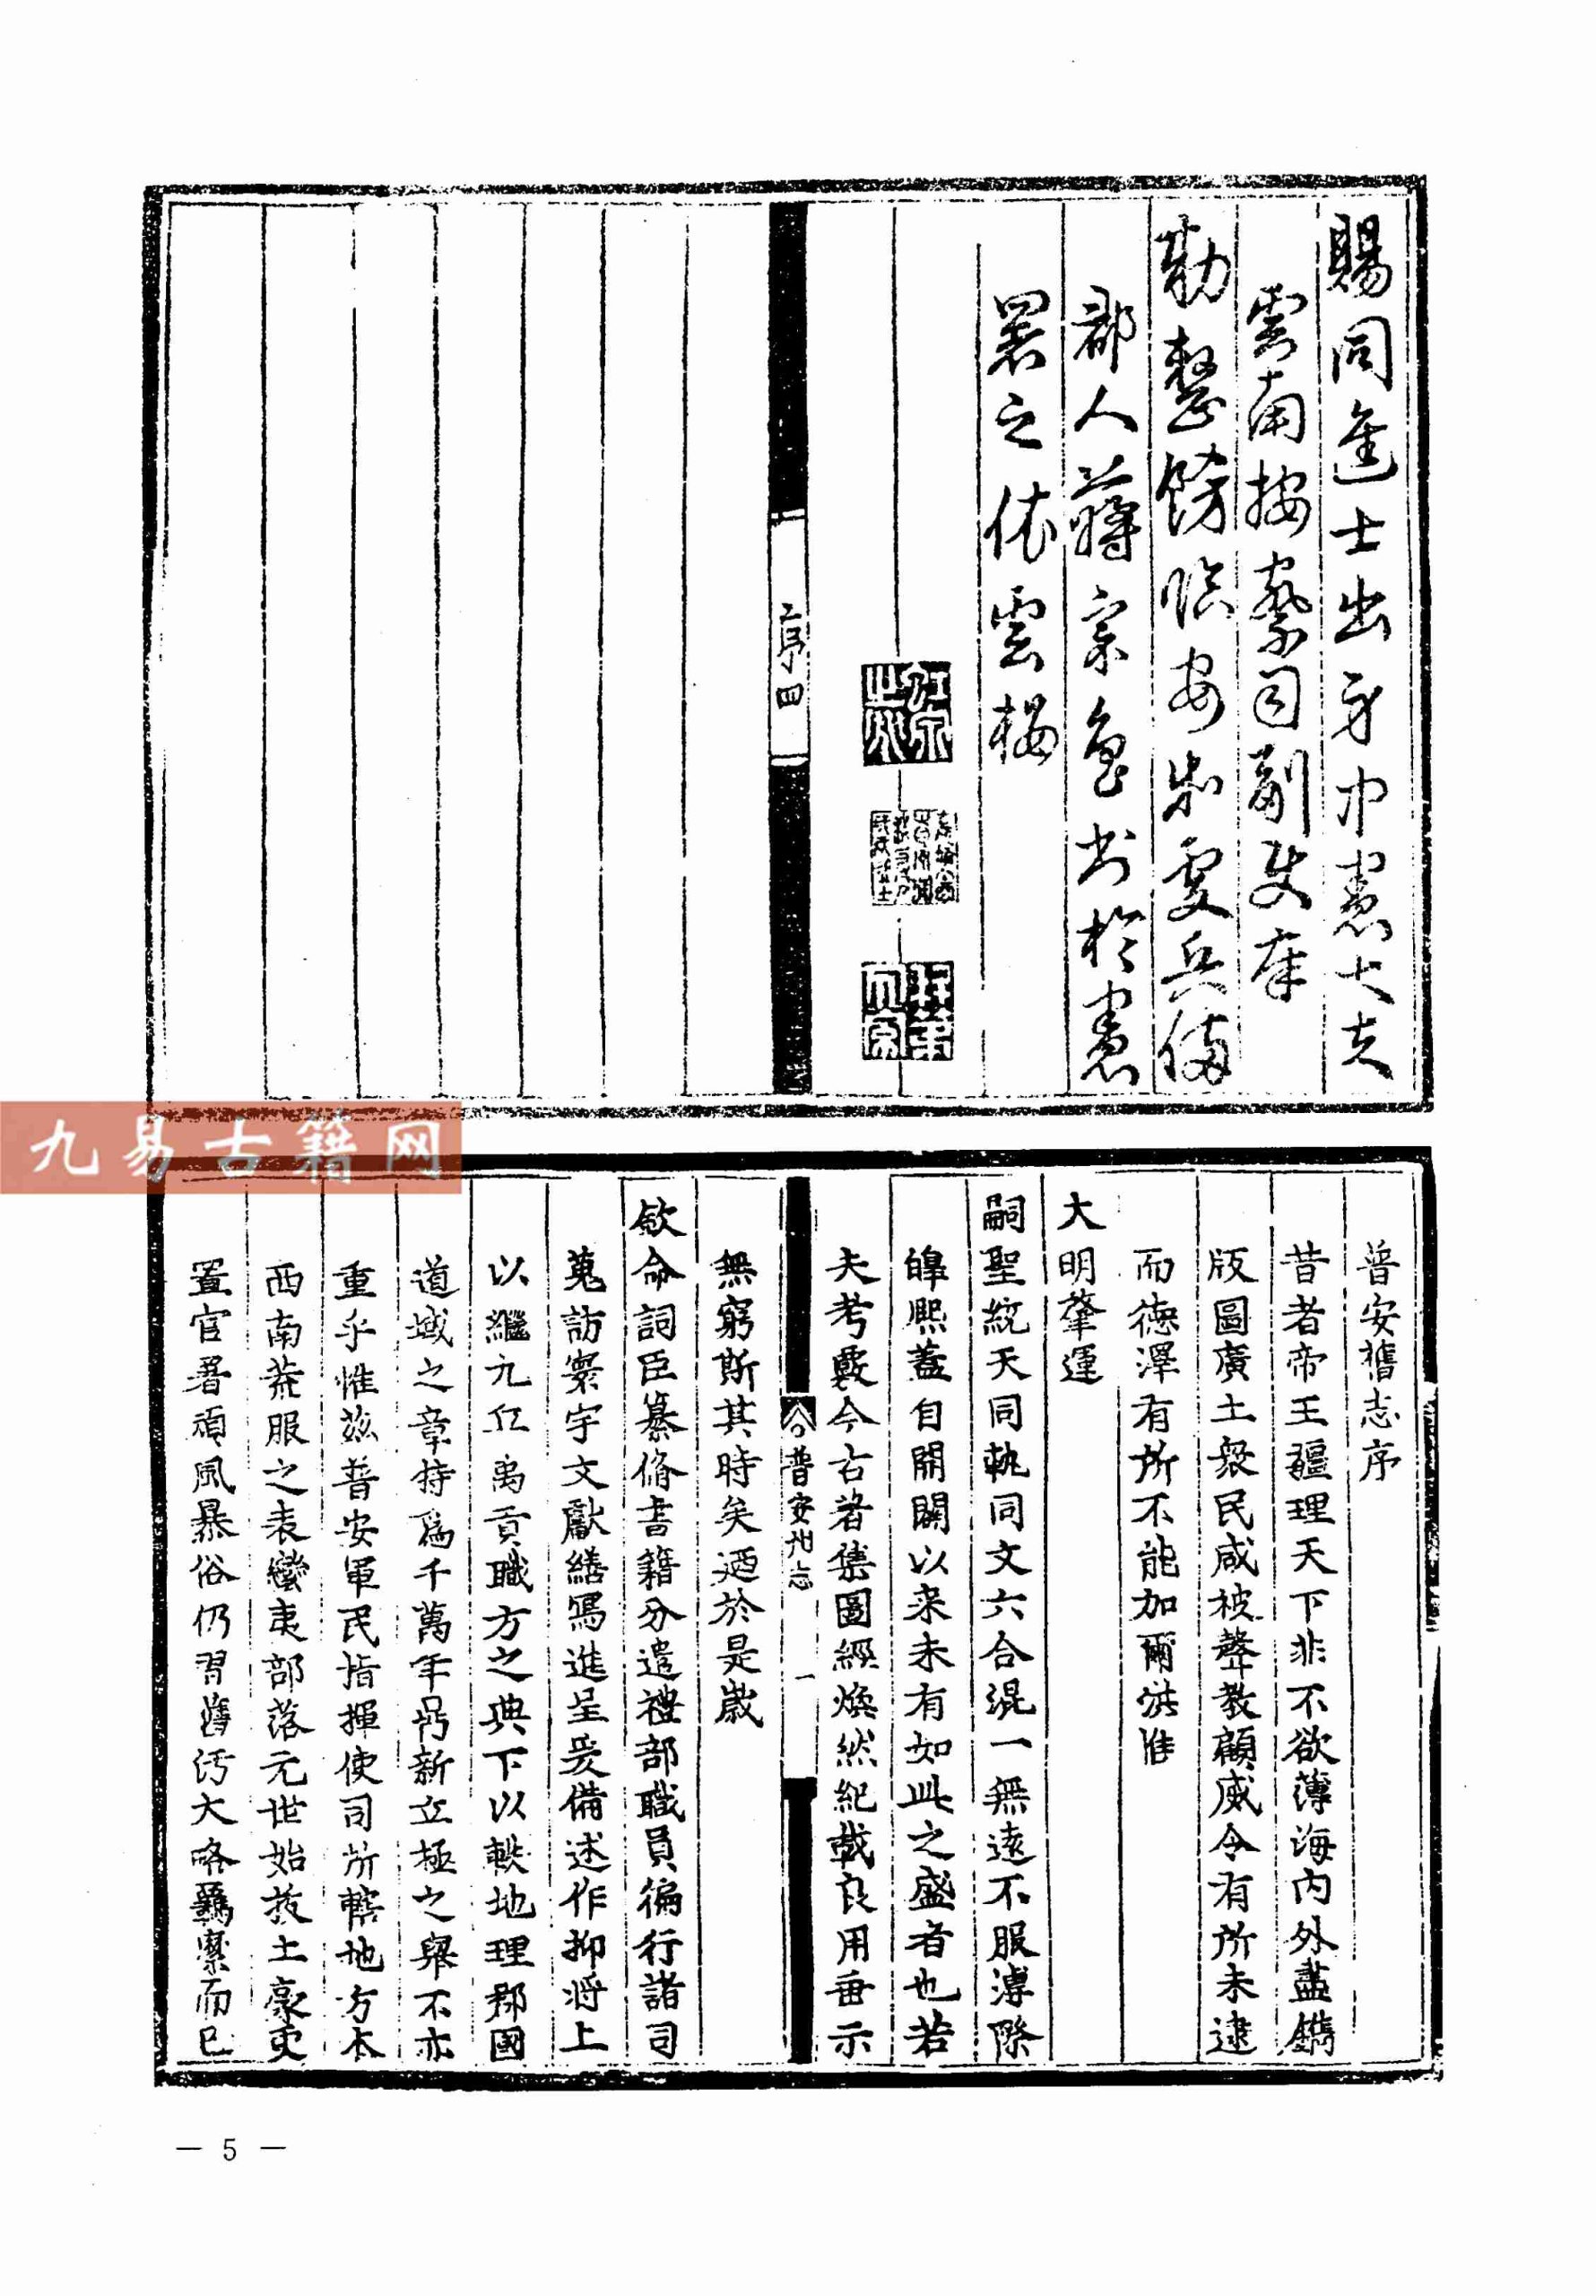 賜同進士出身中憲大夫
雲南按察司副使奉
勅整飭臨安安兵備
郡人蔣宗魯書於憲
署之依雲樓
序四
普安舊志序
昔者帝王疆理天下非不欲薄海内外盡鐫
版圖廣土衆民咸被聲教顧威令有所未逮
而德澤有所不能加爾洪惟
大明肇運
嗣聖統天同軌同文六合混一無遠不服溥際
皞熙蓋自開闢以来未有如此之盛者也若
夫考覈今古著集圖經煥然紀載良用垂示
普安州志
一
無窮斯其時矣迺於是歲
欽命詞臣纂脩書籍分遣禮部職員徧行諸司
蒐訪寰宇文獻繕寫進呈爰備述作抑將上
以繼九丘禹貢職方之典下以軼地理郡國
道域之章特爲千萬年新立極之舉不亦
重乎惟茲普安軍民指揮使司所轄地方本
西南荒服之表蠻夷部落元世始拔土豪吏
置官署頑風暴俗仍習舊汚大略羈縻而已
— 5 —
九易古籍网